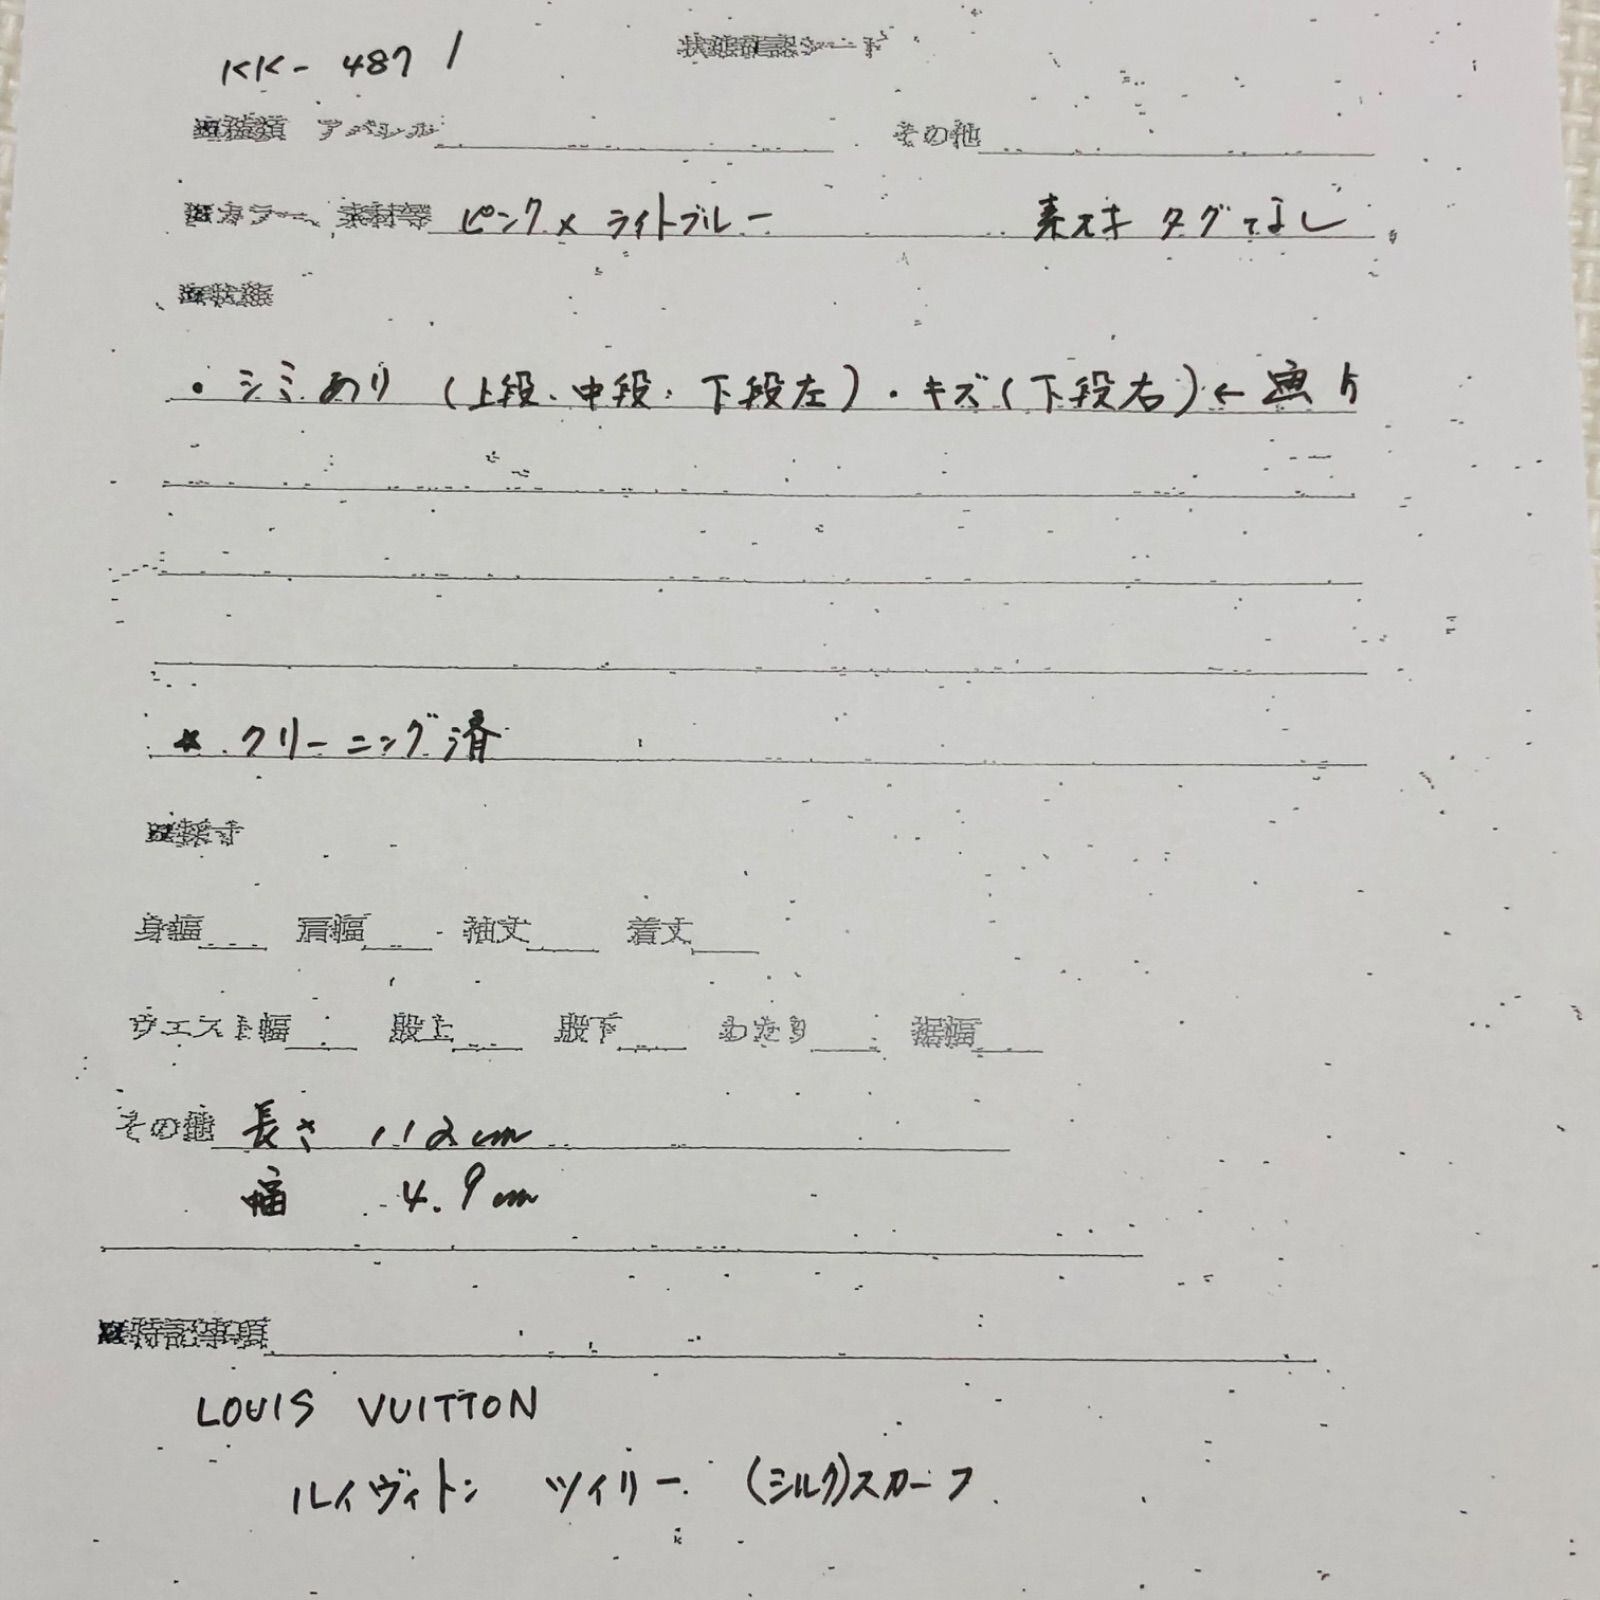 KK-4871
状態確認シート
■種類 アパレル その他
■カラー、素材等 ピンク×ライトブルー 素材タグなし
■状態
・シミあり (上段、中段、下段左)・キズ(下段右)←画
★クリーニング済
■採寸
身幅 肩幅 袖丈 着丈
ウエスト幅 股上 股下 わたり 裾幅
その他 長さ 112cm
幅 4.9cm
■特記事項
LOUIS VUITTON
ルイヴィトン ツイリー (シルク)スカーフ